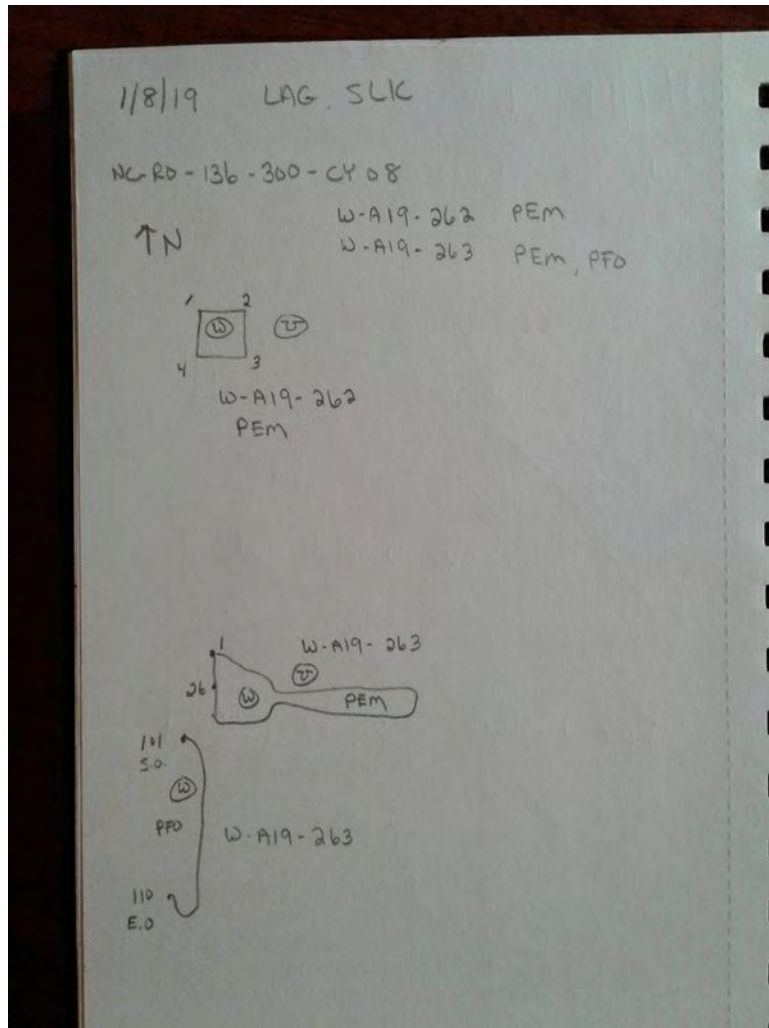 1/8/19 LAG. SLK
NC-RD-136-300-CY08
W-A19-262 PEM
↑N
W-A19-263 PEM, PFO
1 2
W U
4 3
W-A19-262
PEM
1 W-A19-263
U
26 W PEM
101
S.O.
W
PFO W-A19-263
110
E.O